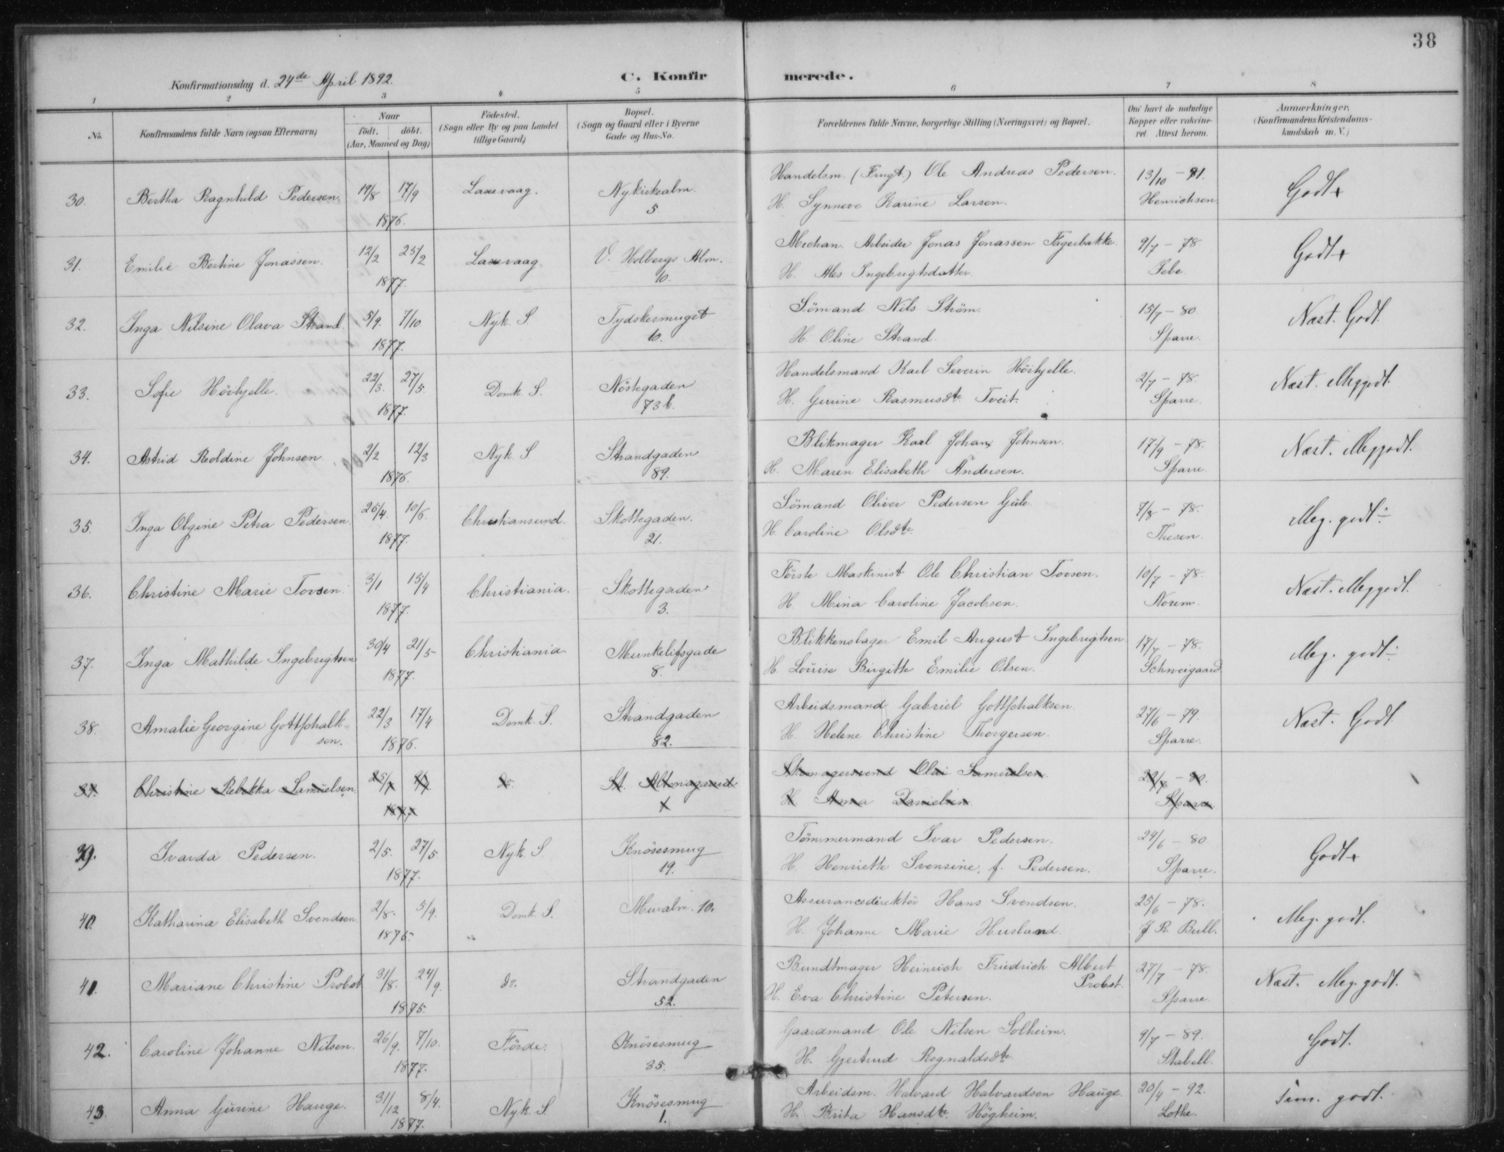 38
Konfirmationsdag d. 24de April 1892.
C. Konfirmerede.
1 2 3 4 5 6 7 8
No. Konfirmandens fulde Navn (ogsaa Efternavn)
Naar født, døbt. (Aar, Maaned og Dag)
Fødested. (Sogn eller By og paa Landet tillige Gaard)
Bopæl. (Sogn og Gaard eller i Byerne Gade og Hus-No.
Forældrenes fulde Navne, borgerlige Stilling (Næringsvei) og Bopæl.
Om havt de naturlige Kopper eller vaccineret Attest herom.
Anmærkninger. (Konfirmandens Kristendomskundskab m. V.)
30. Bertha Ragnhild Pedersen. 19/8 17/9 Laxevaag. Nykirkealm. Handelsm. (Fungt) Ole Andreas Pedersen. 13/10 - 81. Godt+
1876. 5 H. Synneve Karine Larsen. Henrichsen.
31. Emilie Bertine Jonassen. 12/2 25/2 Laxevaag. V. Holbergs Alm. Mechan. Arbeider Jonas Jonassen Fagerbakke. 9/7 - 78 Godt+
1877 10. H. Ales Ingebrigtsdatter
32. Inga Nilsine Olava Strand. 5/9. 7/10 Nyk S Tydskesmuget Sömand Nils Ström. 15/7 - 80 Næst. Godt.
1877. 6. H. Oline Strand. Sparre.
33. Sofie Hövhjelle. 22/3 27/5. Domk S. Nöstegaden Handelsmand Karl Severin Hövhjelle. 2/7 - 78. Næst. Meggodt.
1877. 73 b. H. Gurine Rasmusdtr Tveit. Sparre.
34. Astrid Roldine Johnsen 2/2 12/3 Nyk S Strandgaden Blikmager Karl Johan Johnsen. 17/9 - 78. Næst. Meggodt.
1876. 89. H. Maren Elisabeth Andersen. Sparre.
35. Inga Olgine Petra Pedersen. 26/4. 10/6 Christiansund. Skottegaden. Sömand Oliver Pedersen 7/8 - 78. Meg. godt÷
1877. 21. H. Caroline Olsdtr. Thesen.
36. Christine Marie Tovsen 3/1 15/4 Christiania. Skottegaden Förste Maskinist Ole Christian Tovsen. 10/7 - 78. Næst. Meggodt.
1877. 3. H. Mina Caroline Jacobsen. Norem.
37. Inga Mathilde Ingebrigtsen 30/4 21/5 Christiania Munkelifsgade Blikkenslager Emil August Ingebrigtsen 17/7 - 78. Meg. godt÷
1877. 8. H. Louise Birgitte Emilie Olsen. Schweigaard.
38. Amalie Georgine Gottschalk- 22/3 17/4 Domk. S. Strandgaden Arbeidsmand Gabriel Gottschalksen. 27/6 - 79 Næst. Godt
sen. 1876. 82. H. Helene Christine Thorgersen. Sparre.
Christine Rebekka Samuelsen. Samuelsen
1877 H Anna Danielsen Sparre
39. Ivarda Pedersen. 2/5. 27/5 Nyk S. Knösesmug Tömmermand Ivar Pedersen. 24/6 - 80 Godt+
1877. 19. H. Henriette Svensine, f. Pedersen. Sparre.
40. Katharina Elisabeth Svendsen 2/8. 3/9. Domk S. Muralm. 10. Assurancedirektör Hans Svendsen. 25/6 - 78. Meg. godt.
1876 H. Johanne Marie Husland. J. R. Bull.
41. Mariane Christine Probst 31/8. 24/9. do. Strandgaden Bundtmager Heinrich Friedrich Albert Probst. 27/7 - 78. Næst. Meg. godt.
1875. 52. H. Eva Christine Petersen. Sparre
42. Caroline Johanne Nilsen. 26/9. 7/10. Förde. Knösesmug Gaardmand Ole Nilsen Solheim. 9/7 - 89. Godt.
1877. 35. H. Gjertrud Rognaldsdtr. Stabell.
43. Anna Gurine Hauge. 31/12 8/4. Nyk S Knösesmug Arbeidsm. Halvard Halvardsen Hauge 20/4 - 92. Tem. godt.
1877. 1. H. Brita Hansdtr. Högheim. Lothe.